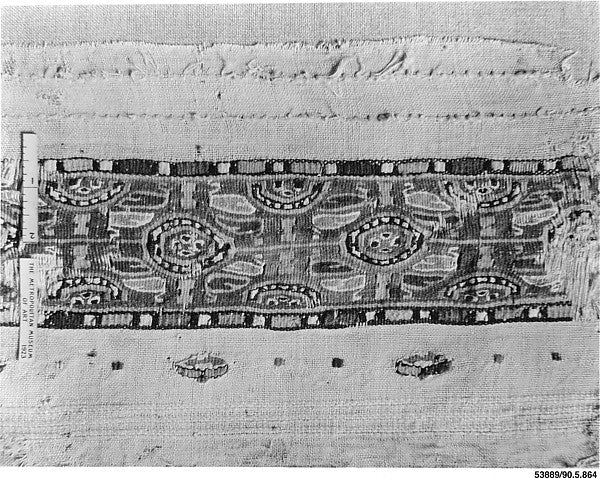 1
2
THE METROPOLITAN MUSEUM
OF ART
1933
53889/90.5.864